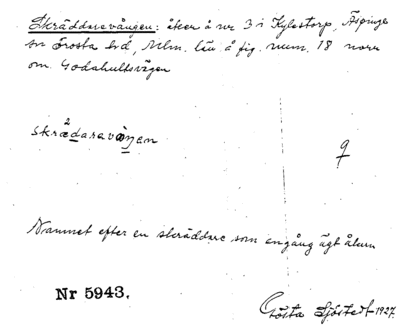 Skräddarevången: åker å nr 3 i Kylestorp, Äspinge
sn Frosta hd, Mlm. län å fig. num. 18 norr
om Godahultsvägen
skræ²daravàŋen
q
Namnet efter en skräddare som engång ägt åkern
Nr 5943.
Gösta Sjöstedt 1927.